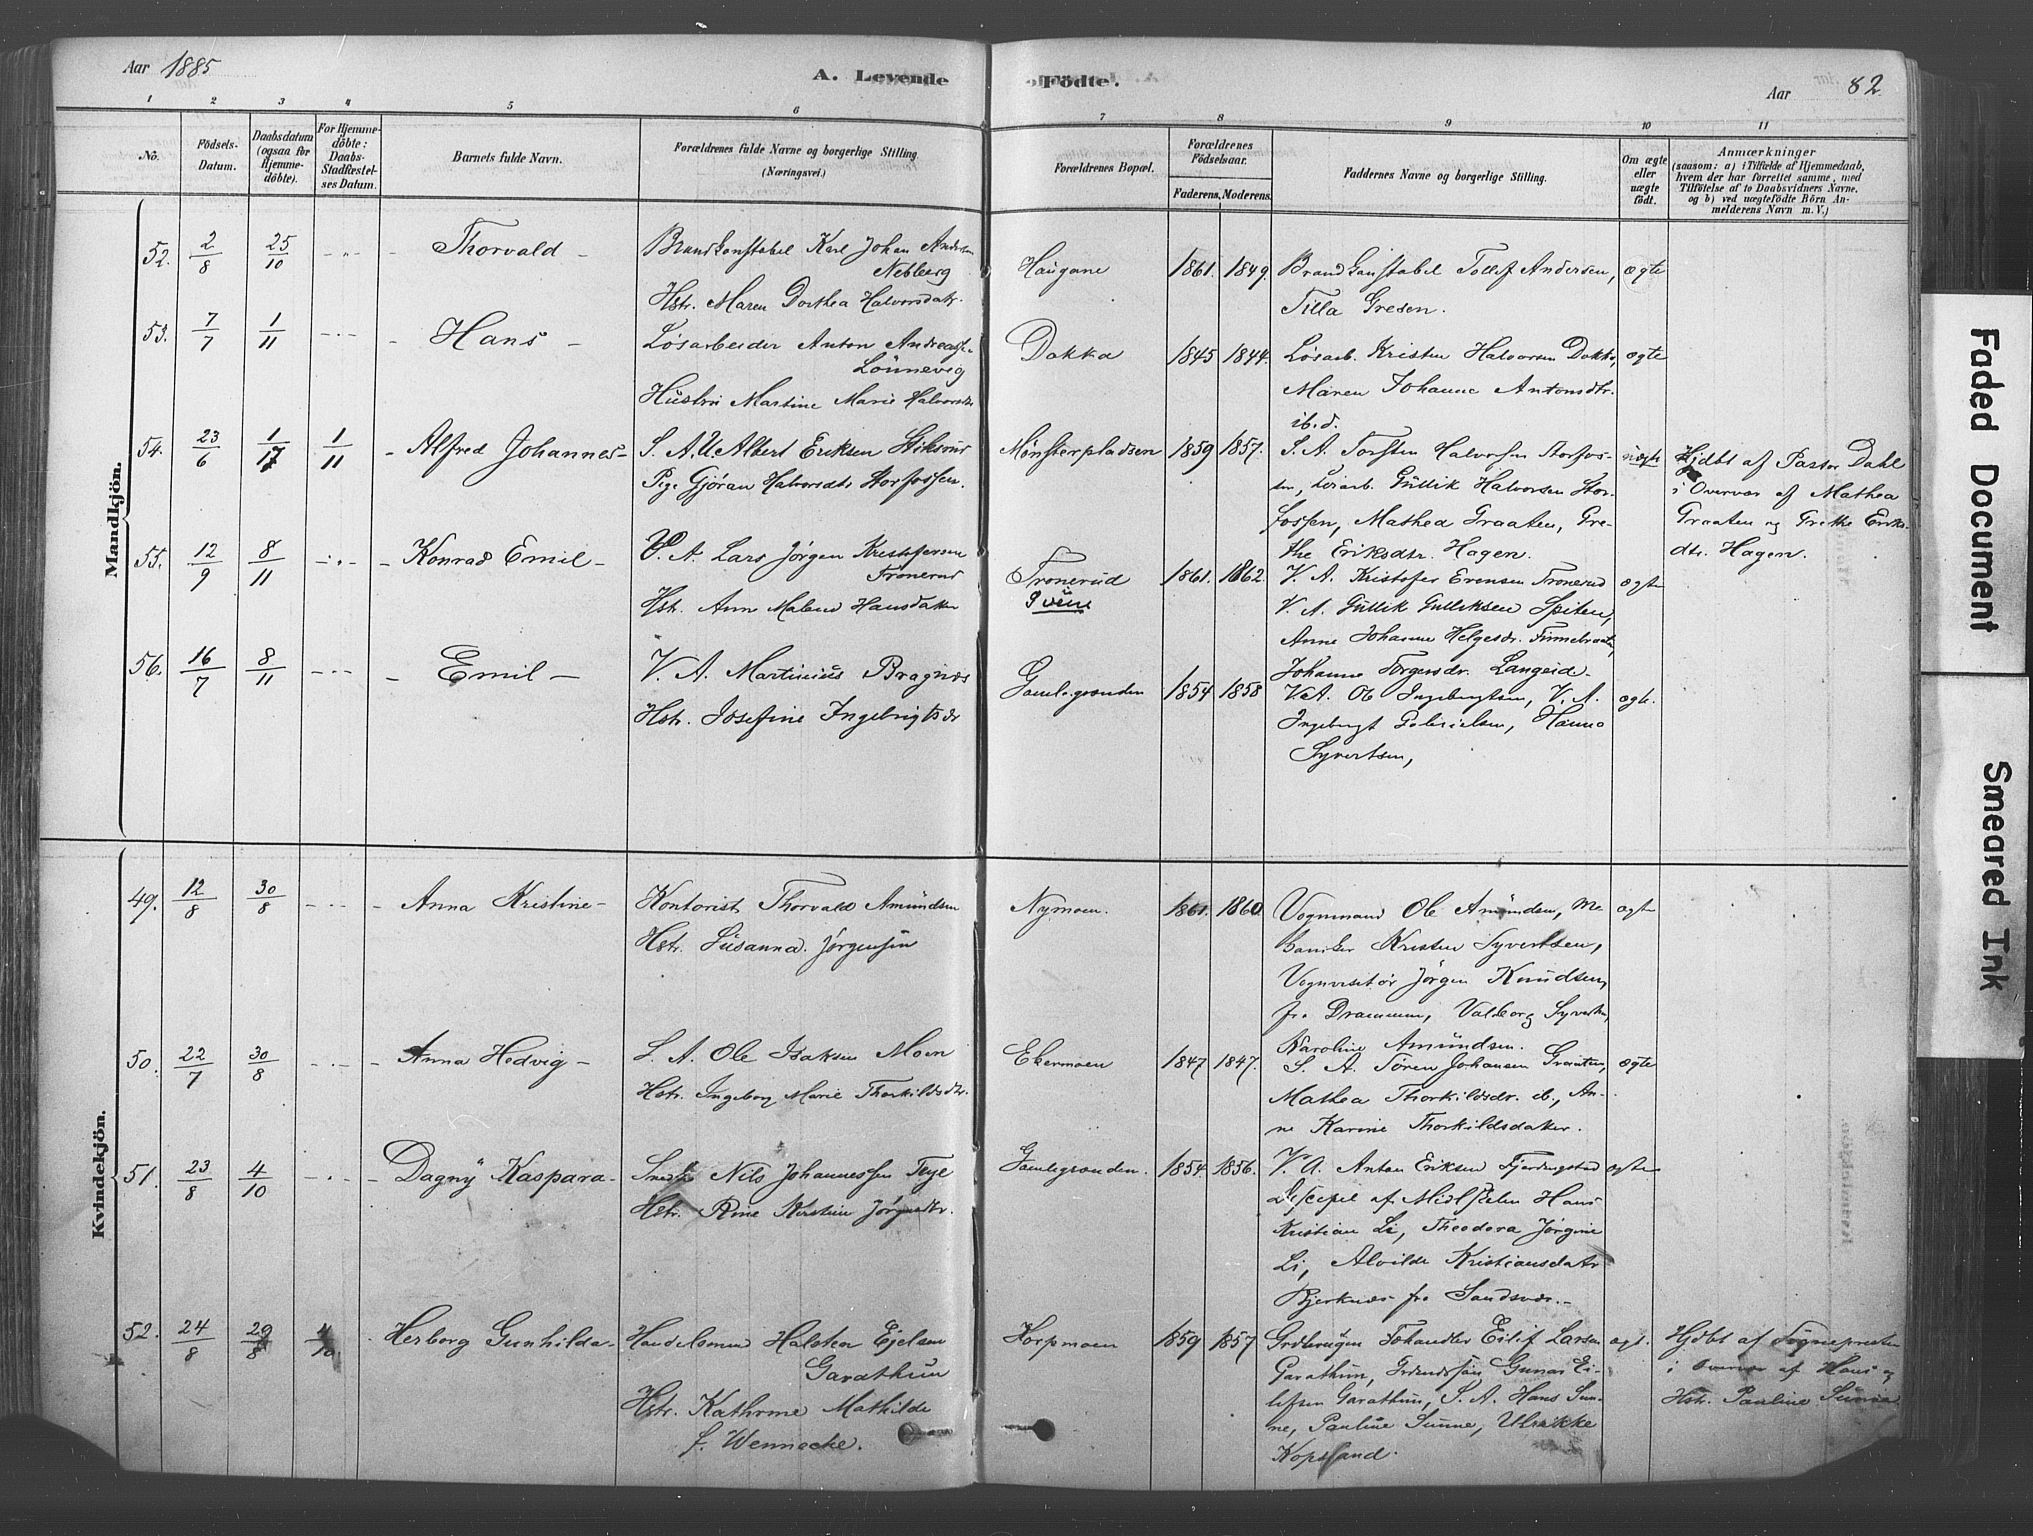 Aar 1885
A. Levende Födte.
Aar 82
1 2 3 4 5 6 7 8 9 10 11
No.
Födsels-
Datum.
Daabsdatum
(ogsaa for
Hjemme-
döbte).
For Hjemme-
döbte:
Daabs-
Stadfæstel-
ses Datum.
Barnets fulde Navn.
Forældrenes fulde Navne og borgerlige Stilling
(Næringsvei.)
Forældrenes Bopæl.
Forældrenes
Födselsaar.
Faderens. Moderens.
Faddernes Navne og borgerlige Stilling.
Om ægte
eller
uægte
födt.
Anmærkninger
(saasom: a) i Tilfælde af Hjemmedaab,
hvem der har forrettet samme, med
Tilföielse af to Daabsvidners Navne.
og b) ved uægtefödte Börn An-
melderens Navn m. V.)
Mandkjön.
52. 2/8 25/10 Thorvald
Brandkonstabel Karl Johan Andersen
Nebberg
Hstr. Maren Dorthea Halvorsdatr.
Haugane 1861. 1849.
Brandkonstabel Tollef Andersen,
Tilla Gresen.
ægte
53. 7/7 1/11 Hans
Løsarbeider Anton Andreass.
Lönnevig
Hustru Martine Marie Halvorsdr.
Dokka 1845 1844.
Løsarb. Kristen Halvorsen Dokka,
Maren Johanne Antonsdtr.
ib.d.
ægte
54. 23/6 1/17 1/11 Alfred Johannes
S. A. U. Albert Eriksen Stiksrud
Pige Gjøran Halvorsdtr. Storfossen.
Mønsterpladsen 1859 1857.
S. A. Torsten Halvorsen Storfos-
sen, Løsarb. Gullik Halvorsen Stor-
fossen, Mathea Graaten, Gre-
the Eriksdtr. Hagen.
uægte
Hjdbt af Pastor Dahl
i Overvær af Mathea
Graaten og Grethe Eriks-
dtr. Hagen.
55. 12/9 8/11 Konrad Emil
V. A. Lars Jørgen Kristofersen
Tronerud
Hstr. Ann Malene Hansdatter
Tronerud
1861. 1862.
V. A. Kristofer Evensen Tronerud
V. A. Gullik Gulliksen Spiten,
Anne Johanne Helgesdr. Finnebraaten,
Johanne Torgersdr. Langeid.
ægte
56. 16/7 8/11 Emil
V. A. Martinius Bragnæs
Hstr. Josefine Ingebrigtsdr
Gamlegrenden 1854 1858
V. A. Ole Ingebrigtsen, V. A.
Ingebrigt Gabrielsen, Hanna
Syvertsen,
ægte.
Kvindekjön.
49. 12/8 30/8 Anna Kristine
Kontorist Thorvald Amundsen
Hstr. Susanna Jørgensen
Nymoen. 1861. 1860.
Vognmand Ole Amundsen, Me
kaniker Kristen Syvertsen,
Vognvisitør Jørgen Knudsen,
fra Drammen, Valborg Syvertsen,
Karoline Amundsen.
ægte
50. 22/7 30/8 Anna Hedvig
S. A. Ole Isaksen Moen
Hstr. Ingeborg Marie Thorkildsdtr.
Ekermoen 1847 1847.
S. A. Søren Johansen Graaten,
Mathea Thorkildsdr. ib., An-
ne Karine Thorkildsdatter.
ægte
51. 23/8 4/10 Dagny Kaspara
Snedker Nils Johannessen Teye
Hstr. Rine Kirstine Jørgensdtr.
Gamlegrenden. 1854. 1856.
V. A. Anton Eriksen Fjerdingstad
Discipel af Midlskolen Hans
Kristian Li, Theodora Jørgine
Li, Alvilde Kristiansdatr
Bjerknæs fra Sandsvær.
ægte
52. 24/8 29/8 4/10 Herborg Gunhilda
Handelsmand Halsten Ejelsen
Garathun
Hstr. Kathrine Mathilde
f. Wennecke.
Korpmoen 1859 1857
Eilif Larsen
Garathun, Gunnar Ei-
lifsen Garathun, S. A. Hans Sun-
ne, Pauline Sunne, Ulrikke
Kopsland.
ægt.
Hjdbt af Sognepresten
i Overvær af Hans og
Hstr. Pauline Sunne
Faded Document
Smeared Ink